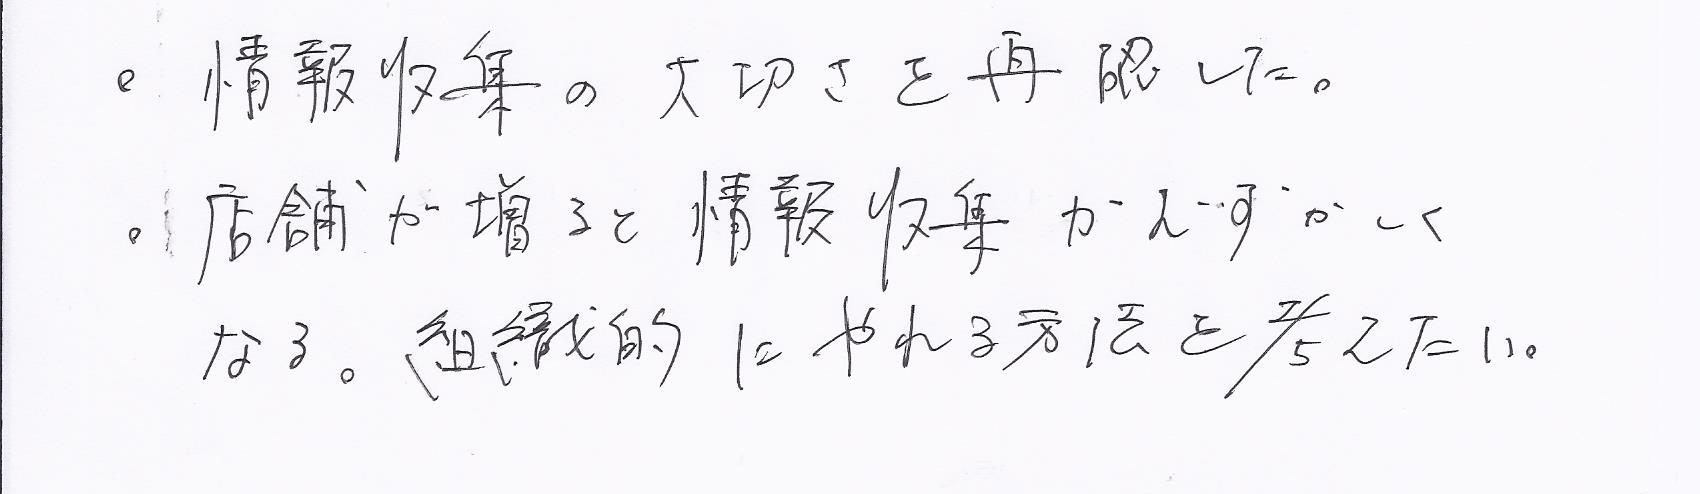 ・情報収集の大切さを再認した。
・店舗が増ると情報収集がむずかしく
なる。組織的にやれる方法を考えたい。